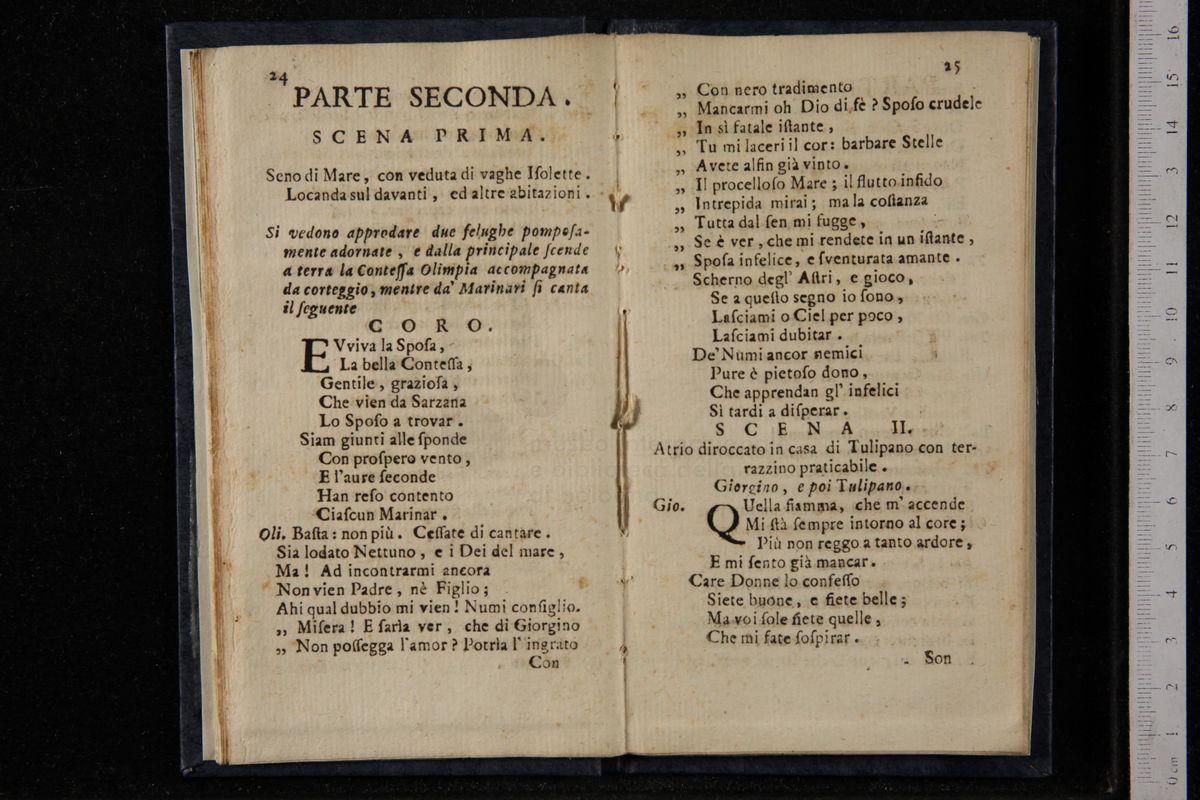 24
PARTE SECONDA.
SCENA PRIMA.
Seno di Mare, con veduta di vaghe Iſolette.
Locanda sul davanti, ed altre abitazioni.
Si vedono approdare due felughe pompoſa-
mente adornate, e dalla principale ſcende
a terra la Conteſſa Olimpia accompagnata
da corteggio, mentre da' Marinari ſi canta
il ſeguente
CORO.
EVviva la Spoſa,
La bella Conteſſa,
Gentile, grazioſa,
Che vien da Sarzana
Lo Spoſo a trovar.
Siam giunti alle ſponde
Con proſpero vento,
E l'aure ſeconde
Han reſo contento
Ciaſcun Marinar.
Oli. Baſta: non più. Ceſſate di cantare.
Sia lodato Nettuno, e i Dei del mare,
Ma! Ad incontrarmi ancora
Non vien Padre, nè Figlio;
Ahi qual dubbio mi vien! Numi conſiglio.
„ Miſera! E ſarìa ver, che di Giorgino
„ Non poſſegga l'amor? Potrìa l' ingrato
Con
25
„ Con nero tradimento
„ Mancarmi oh Dio di fè? Spoſo crudele
„ In sì fatale iſtante,
„ Tu mi laceri il cor: barbare Stelle
„ Avete alfin già vinto.
„ Il procelloſo Mare; il flutto infido
„ Intrepida mirai; ma la coſtanza
„ Tutta dal ſen mi fugge,
„ Se è ver, che mi rendete in un iſtante,
„ Spoſa infelice, e ſventurata amante.
Scherno degl' Aſtri, e gioco,
Se a queſto segno io ſono,
Laſciami o Ciel per poco,
Laſciami dubitar.
De' Numi ancor nemici
Pure è pietoſo dono,
Che apprendan gl' infelici
Sì tardi a diſperar.
SCENA II.
Atrio diroccato in casa di Tulipano con ter-
razzino praticabile.
Giorgino, e poi Tulipano.
Gio. QUella fiamma, che m' accende
Mi ſtà ſempre intorno al core;
Più non reggo a tanto ardore,
E mi ſento già mancar.
Care Donne lo confeſſo
Siete buone, e ſiete belle;
Ma voi ſole ſiete quelle,
Che mi fate ſoſpirar.
Son
0 cm 1 2 3 4 5 6 7 8 9 10 11 12 13 14 15 16